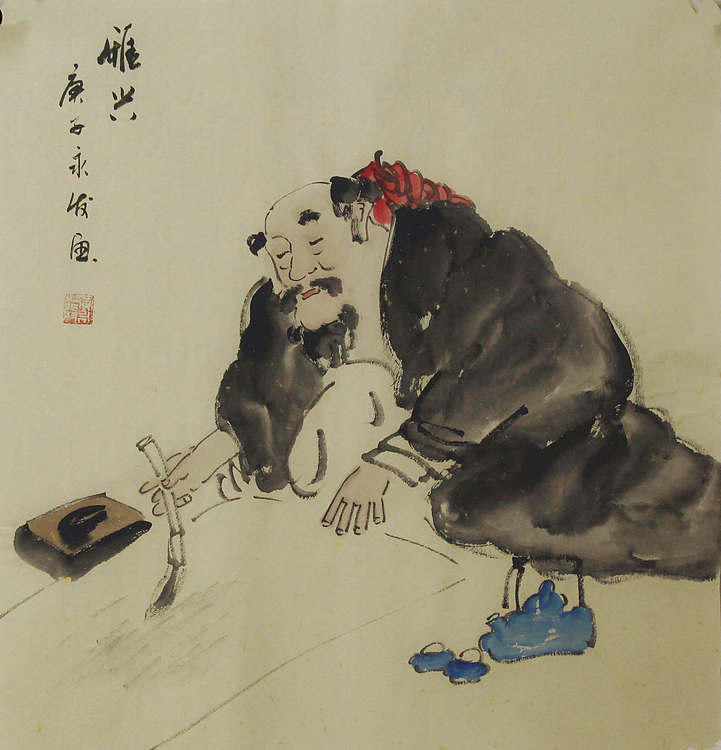 雅兴
庚子永发画